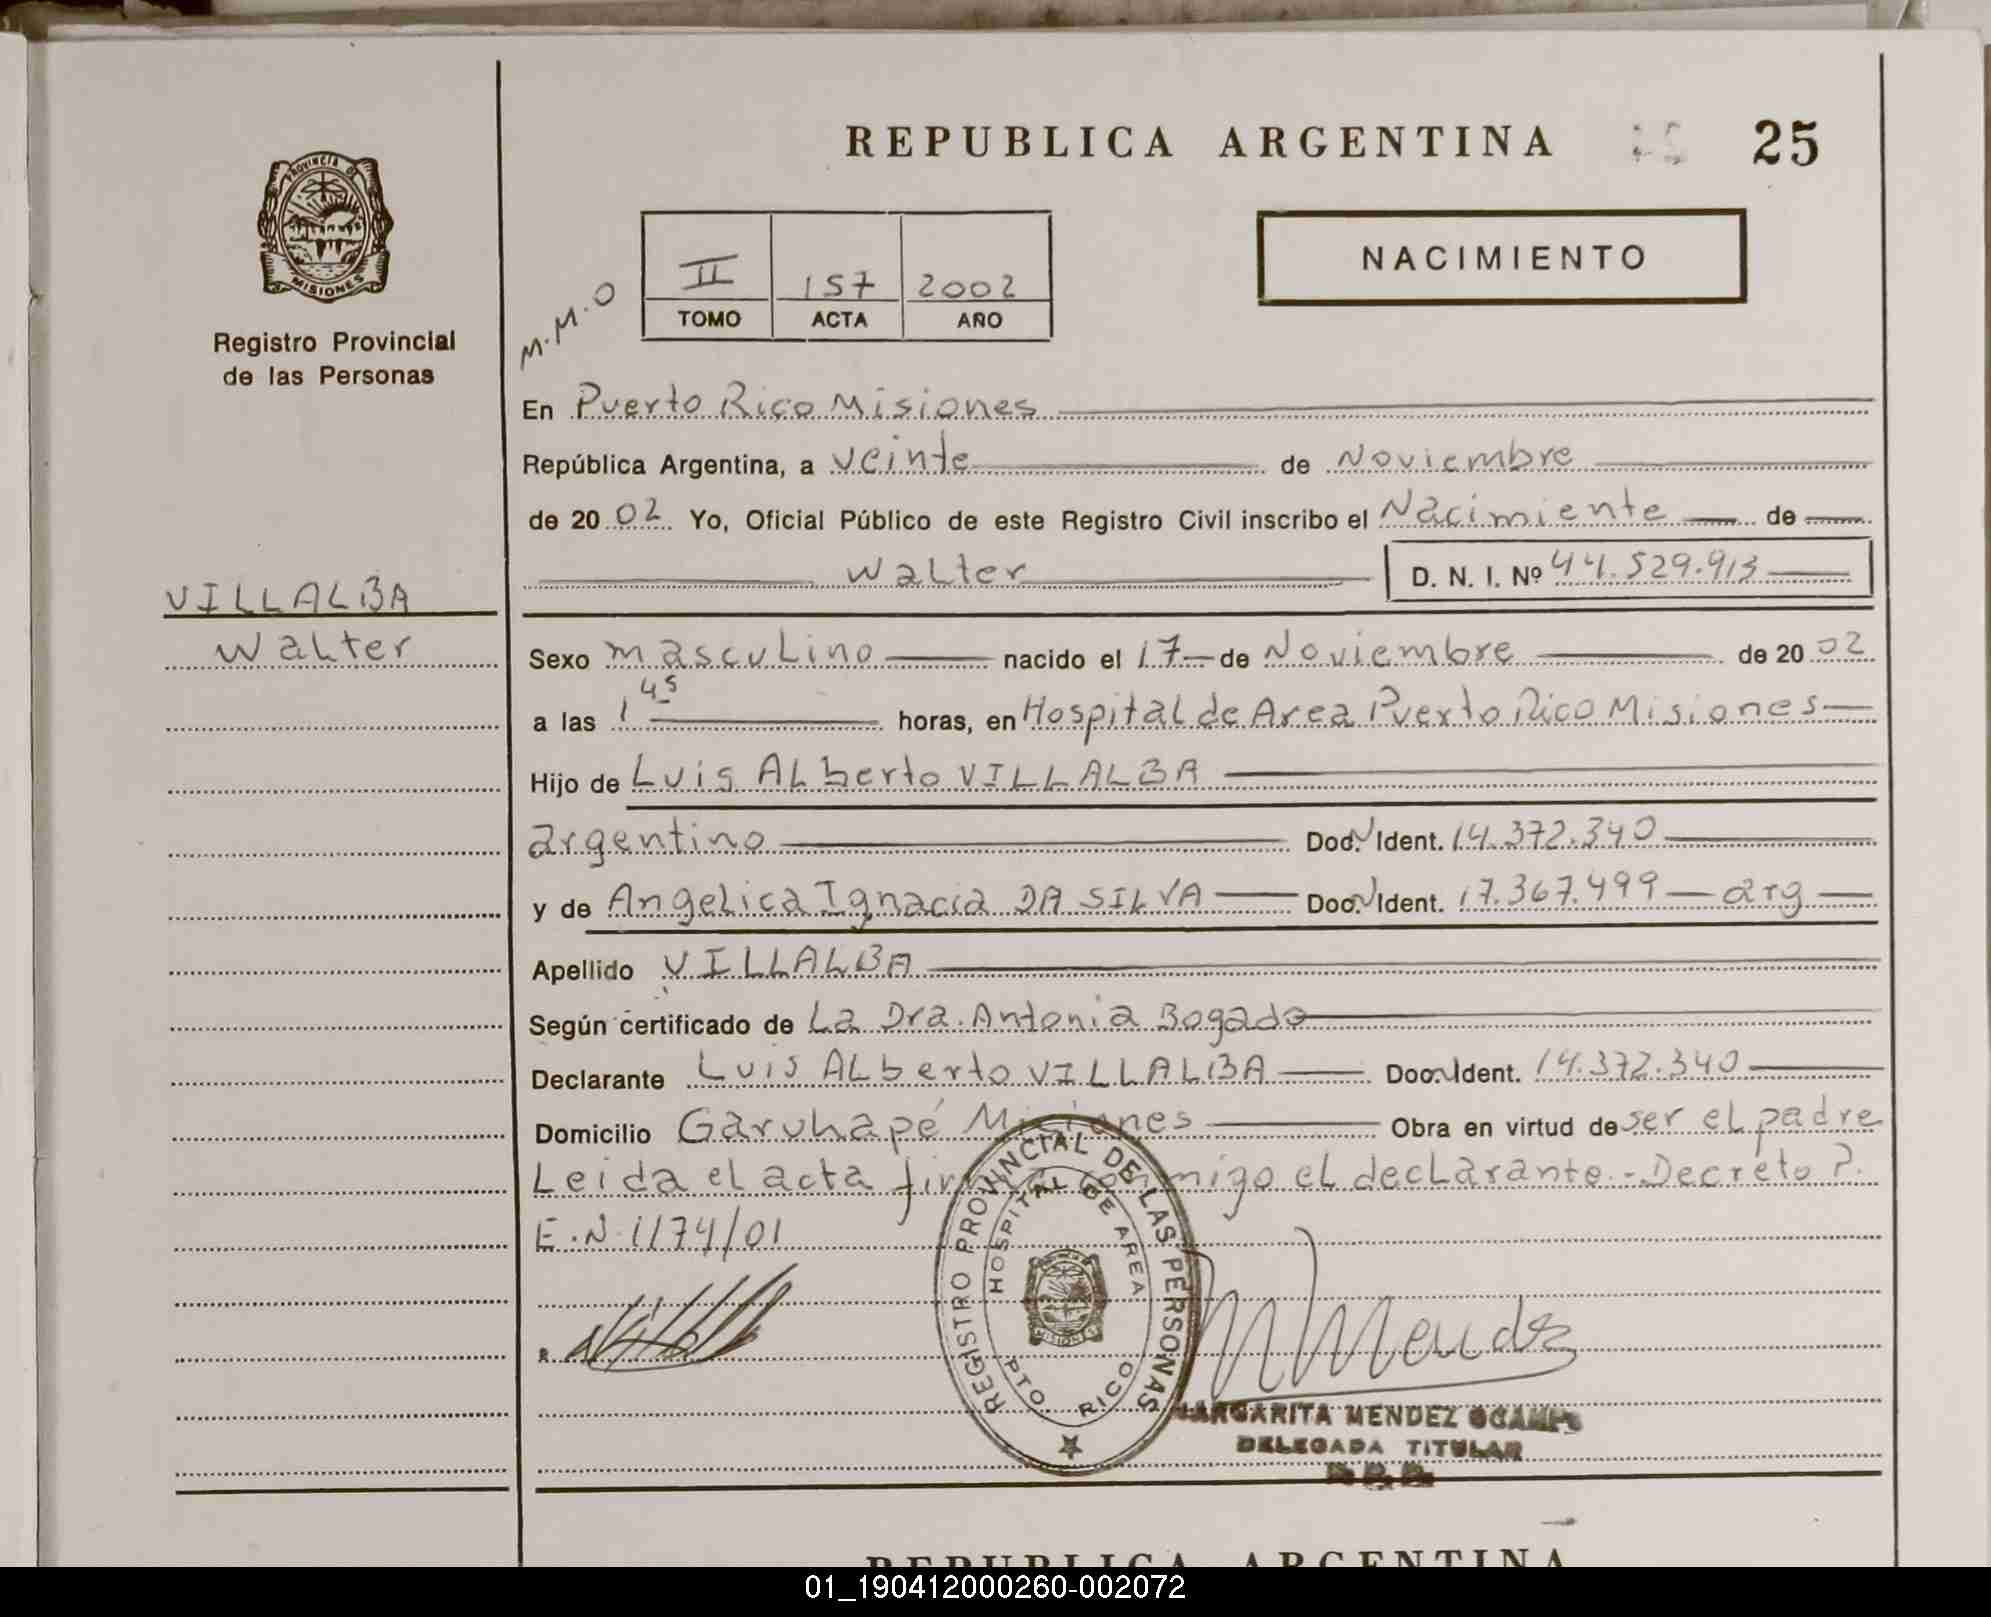 REPUBLICA ARGENTINA 25
PROVINCIA DE
MISIONES
Registro Provincial
de las Personas
NACIMIENTO
M.M.O
II 157 2002
TOMO ACTA AÑO
En Puerto Rico Misiones
República Argentina, a veinte de Noviembre
de 2002 Yo, Oficial Público de este Registro Civil inscribo el Nacimiente de
Walter D. N. I. Nº 44.529.913
VILLALBA
Walter
Sexo masculino nacido el 17 de Noviembre de 2002
a las 1 45 horas, en Hospital de Area Puerto Rico Misiones
Hijo de Luis Alberto VILLALBA
argentino Doc. N Ident. 14.372.340
y de Angelica Ignacia DA SILVA Doc. N Ident. 17.367.499 arg
Apellido VILLALBA
Según certificado de La Dra. Antonia Bogado
Declarante Luis Alberto VILLALBA Doc. N Ident. 14.372.340
Domicilio Garuhapé Misiones Obra en virtud de ser el padre
Leida el acta firma conmigo el declarante.- Decreto P.
E.N. 1174/01
REGISTRO PROVINCIAL DE LAS PERSONAS
HOSPITAL DE AREA
MISIONES
PTO. RICO
M Mendez
MARGARITA MENDEZ OCAMPO
DELEGADA TITULAR
REPUBLICA ARGENTINA
01_190412000260-002072